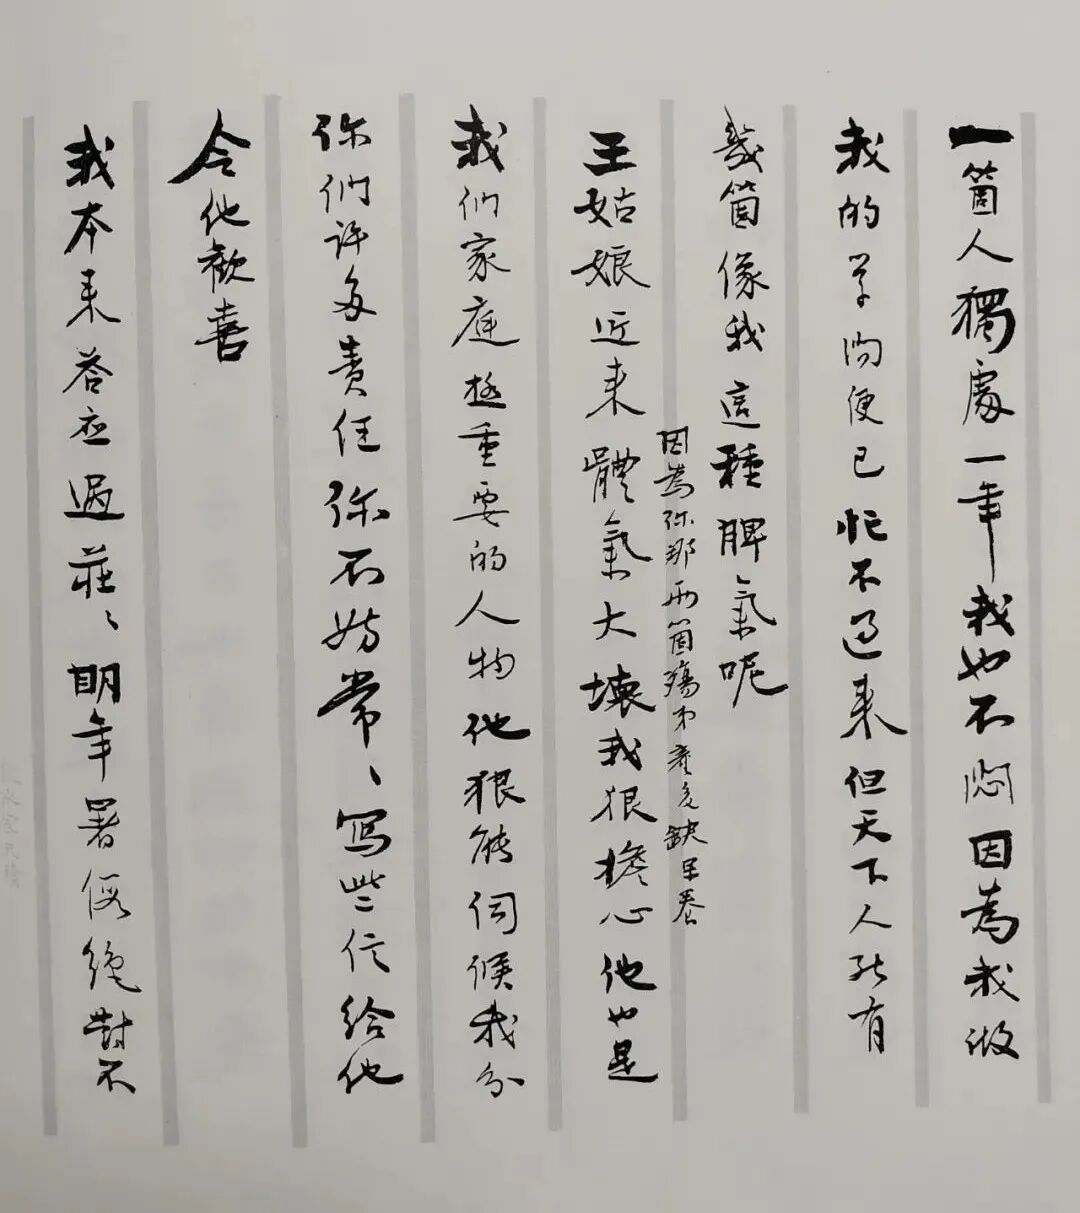 一箇人獨處一年我也不悶因為我做
我的学问便已忙不过来但天下人能有
幾箇像我這種脾氣呢
因為你那兩箇殤弟產後缺保養
王姑娘近来體氣大壞我狠擔心他也是
我们家庭極重要的人物他狠能伺候我分
你们許多責任你不妨常、寫些信給他
令他歡喜
我本来答应過莊、明年暑假絕對不